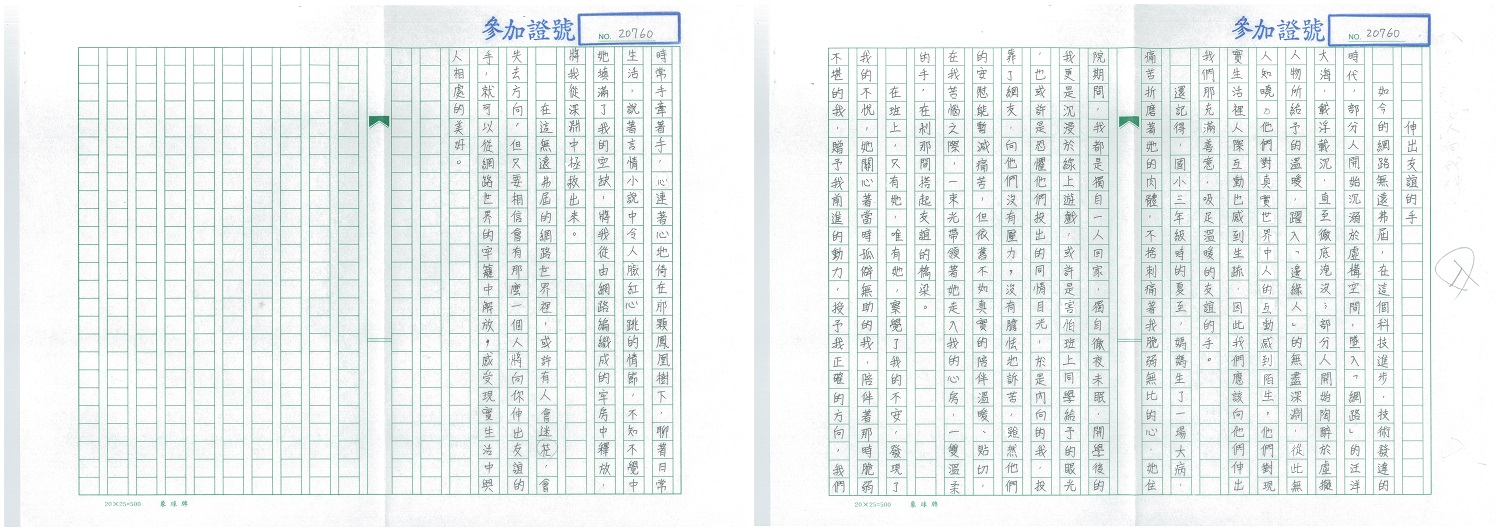 參加證號
NO. 20760
伸出友誼的手
如今的網路無遠弗屆，在這個科技進步，技術發達的
時代，部分人開始沉溺於虛構空間，墮入「網路」的汪洋
大海，載浮載沉，直至徹底淹沒；部分人開始陶醉於虛擬
人物所給予的溫暖，躍入「邊緣人」的無盡深淵，從此無
人知曉。他們對真實世界中人的互動感到陌生，他們對現
實生活裡人際互動也感到生疏，因此我們應該向他們伸出
我們那充滿善意，吸足溫暖的友誼的手。
還記得，國小三年級時的夏至，媽媽生了一場大病，
痛苦折磨著她的肉體，不捨刺痛著我脆弱無比的心，她住
院期間，我都是獨自一人回家，獨自徹夜未眠，開學後的
我更是沉浸於線上遊戲，或許是害怕班上同學給予的眼光
，也或許是恐懼他們投出的同情目光，於是內向的我，投
靠了網友，向他們沒有壓力，沒有膽怯地訴苦，雖然他們
的安慰能暫減痛苦，但依舊不如真實的陪伴溫暖、貼切，
在我苦惱之際，一束光帶領著她走入我的心房，一雙溫柔
的手，在剎那間搭起友誼的橋梁。
在班上，只有她，唯有她，察覺了我的不安，發現了
我的不悅，她關心著當時孤僻無助的我，陪伴著那時脆弱
不堪的我，贈予我前進的動力，授予我正確的方向，我們
參加證號
NO. 20760
時常手牽著手，心連著心地倚在那顆鳳凰樹下，聊著日常
生活，說著言情小說中令人臉紅心跳的情節，不知不覺中
她填滿了我的空缺，將我從由網路編織成的牢房中釋放，
將我從深淵中拯救出來。
在這無遠弗屆的網路世界裡，或許有人會迷茫，會
失去方向，但又要相信會有那麼一個人將向你伸出友誼的
手，就可以從網路世界的牢籠中解放，感受現實生活中與
人相處的美好。
20×25=500
20×25=500